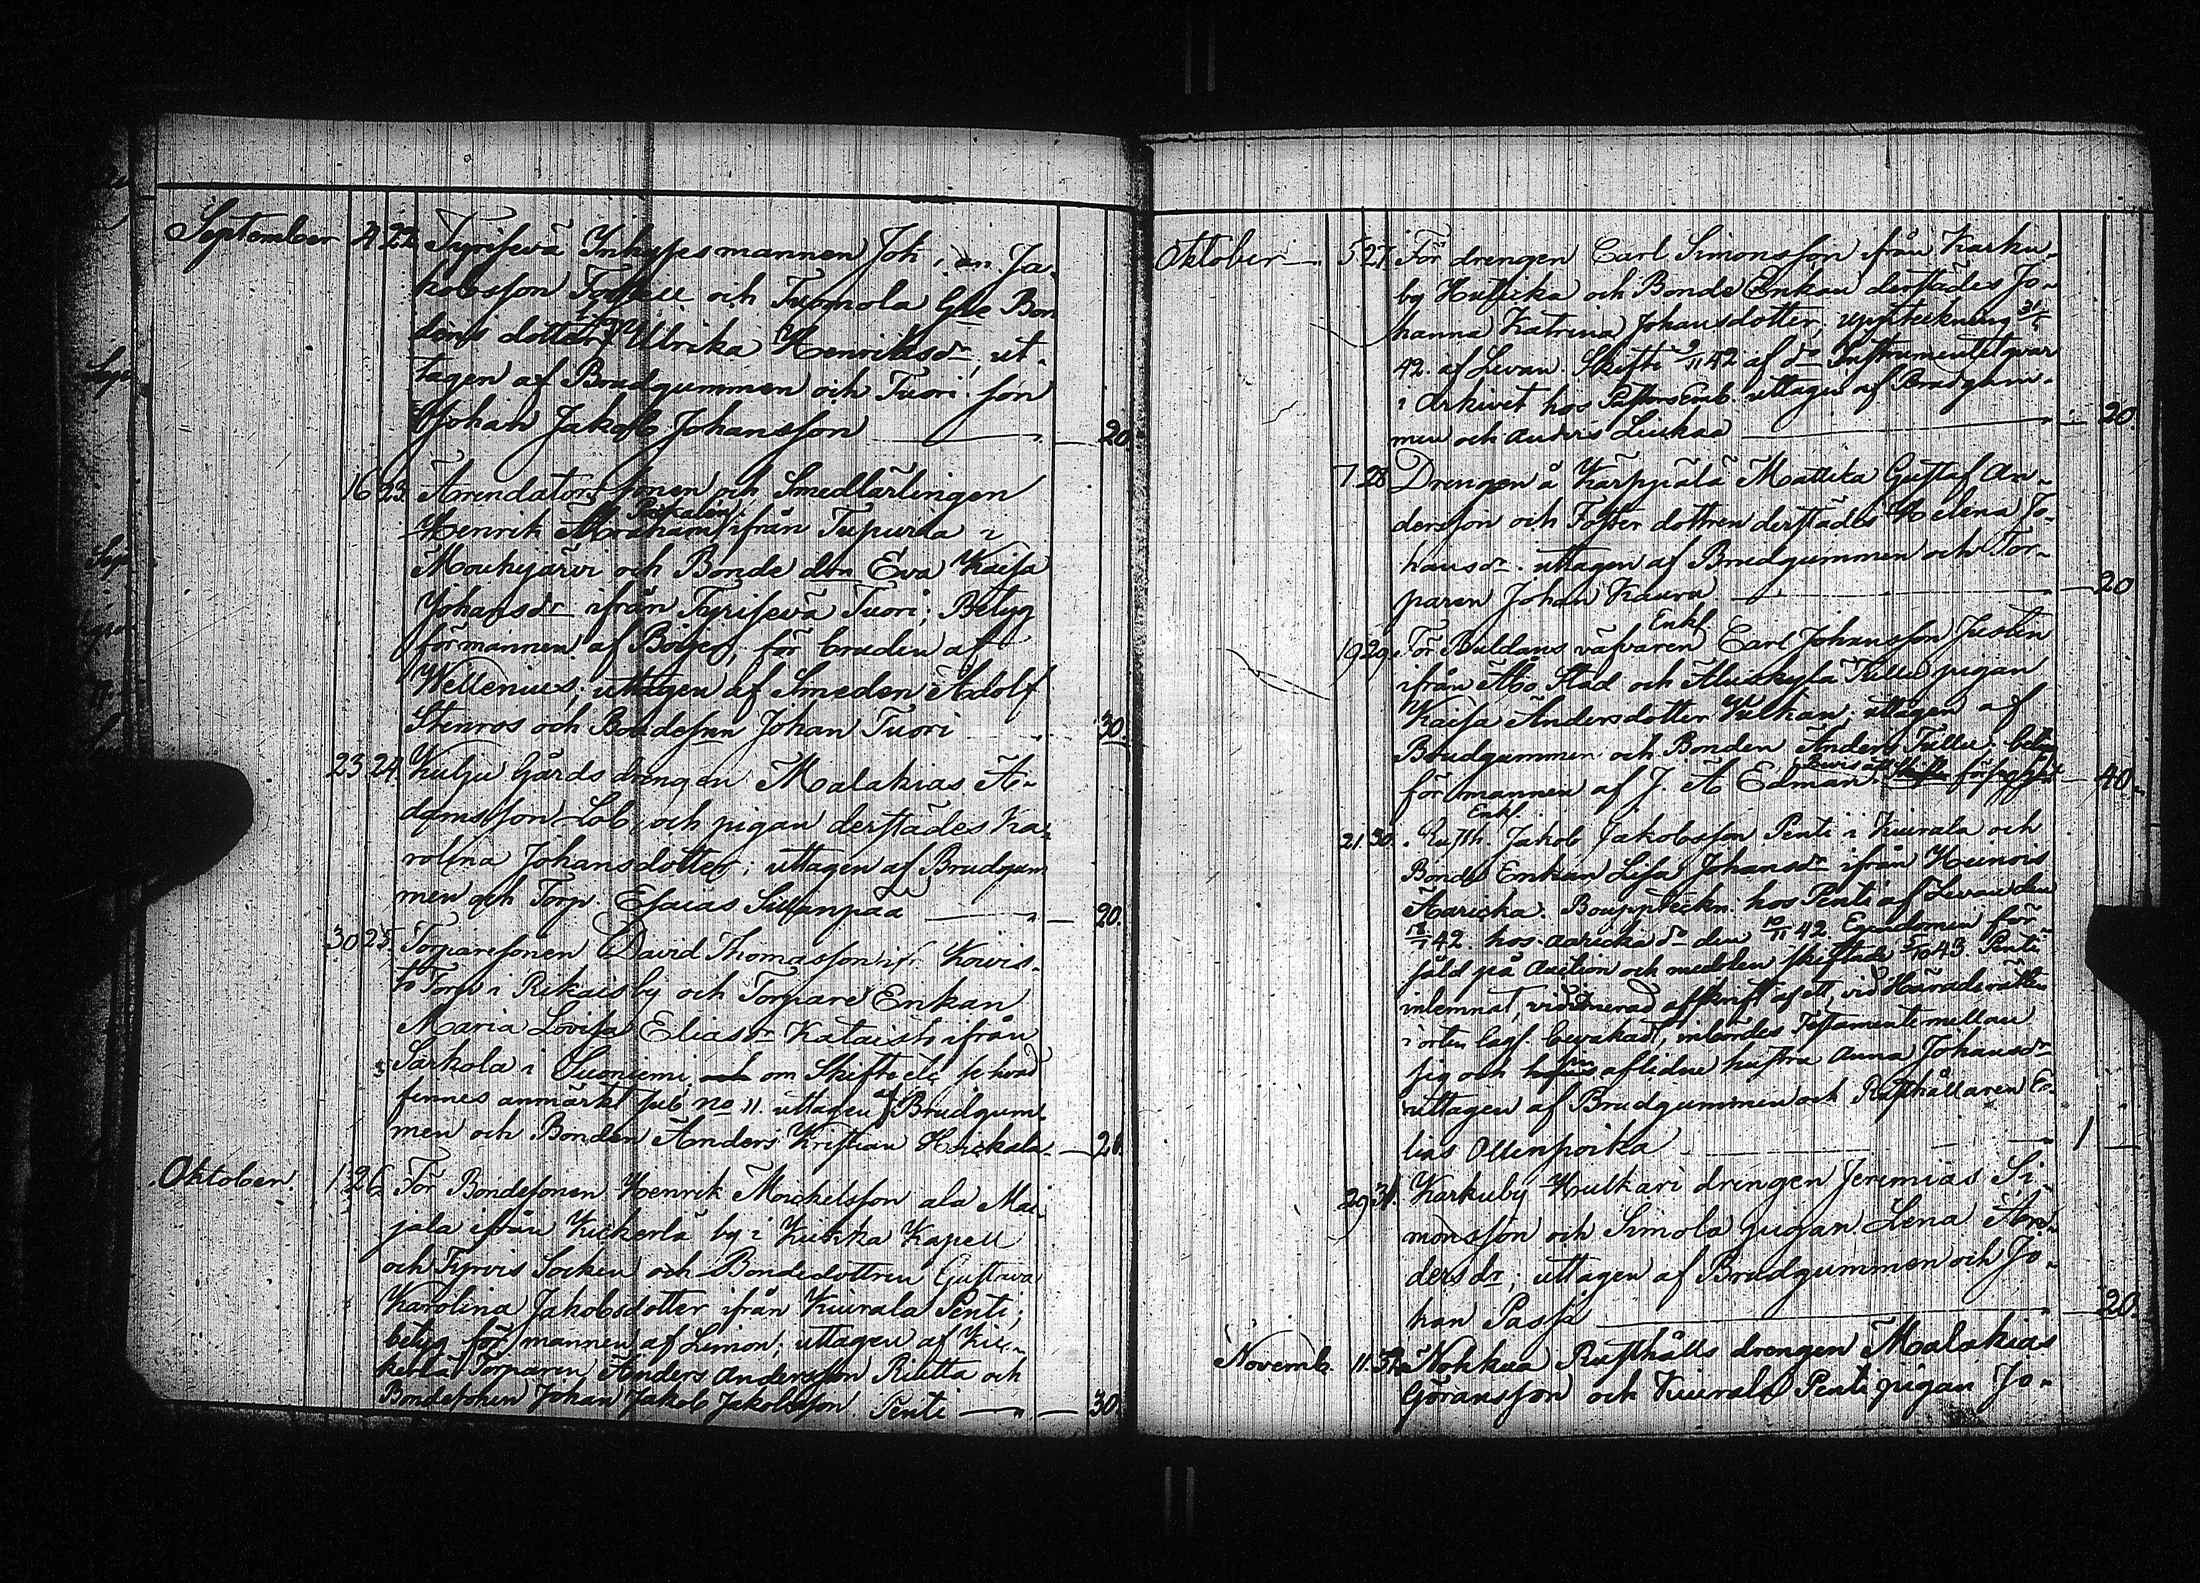 September 4. 22. Tyrisevä Inhysesmannen Joh: an Ja-
kobsson Torsell och Tuomola Gle Bon
dens dotter Ulrika Henriksdr, ut-
tagen af Brudgummen och Tuori son
Johan Jakob Johansson — 20.
16 23. Arrendators sonen och Smedlärlingen
Henrik Abraham ifrån Tupurla i
Mouhijärvi och Bonde don Eva Kaisa
Johansdr ifrån Tyrisevä Tuori; Betyg
för mannen af Böijer, för bruden af
Wellenius; uttagen af Smeden Adolf
Stenros och Bondesonen Johan Tuori 30.
23. 24. Kulju Gårds drengen Malakias A-
damsson Lob, och pigan derstädes Ka-
rolina Johansdotter; uttagen af Brudgum
men och Torp. Esaias Sillanpää — 20.
30 25. Torparesonen David Thomasson if. Kouis-
to Torp i Rikais by och Torpare Enkan
Maria Lovisa Eliasdr Kataisto ifrån
Sarkola i Suoniemi, om Skifte
finnes anmärkt sub. no 11. uttagen af Brudgum-
men och Bonden Anders Kristian Heickala. — 20.
Oktober. 1. 26. För Bondesonen Henrik Michelsson ala Mai-
jala ifrån Kickerlä by i Kiikka Kapell
och Tyrvis Socken och Bondedottren Gustava
Karolina Jakobsdotter ifrån Kiurala Penti;
betyg för mannen af Limon; uttagen af Kic-
kerlä Torparen Anders Andersson Riletta och
Bondesonen Johan Jakob Jakobsson Penti — 30.
Oktober 5 27. För drengen Carl Simonsson ifrån Karku-
by Huttika och Bonde Enkan derstädes Jo-
hanna Katrina Johansdotter, uppteckning
42. af Levan. Skifte 9/11 42 af do Instrumentet qvar
i Arkivet hos Pastors Emb. uttagen af Brudgum-
men och Anders Liukaa — 20.
7 28 Drengen å Kärppälä Mattika Gustaf An-
dersson och Foster dottren derstädes Helena Jo-
hansdr. uttagen af Brudgummen och Tor-
paren Johan Kaura — 20
Enkl.
19 29. För Buldans väfvaren Carl Johansson Justen
ifrån Åbo Stad och Aluskylä Tullu pigan
Kaisa Andersdotter Kulkan; uttagen af
Brudgummen och Bonden Anders Tullu; betyg
för mannen af J. A Edman. Bevis om — 40.
Enkl.
21. 30. Rusth. Jakob Jakobsson Penti i Kiurala och
Bonde Enkan Lisa Johansdr ifrån Heinois
Aaricka. Bouppteckn. hos Penti af Levan den
42. hos Aaricka do den 10/11 42. Egendomen för-
såld på Auction och medolen skiftade 43. Penti
inlemnat, vidimerad afskrift af ett, vid Häradsrätten
i orten lagl. bevakadt, inbördes Testamente mellan
sig och aflidne hustru Anna Johansdr
uttagen af Brudgummen och Rusthållaren E-
lias Ollenpoika — 1 —
29 31. Karkuby Hrulkari drengen Jeremias Si-
monsson och Simola pigan Lena An-
dersdr; uttagen af Brudgummen och Jo-
han Passi — 20.
Novemb. 11. 32. Nokkua Rusthålls drengen Malakias
Göransson och Kiurala Penti pigan Jo-